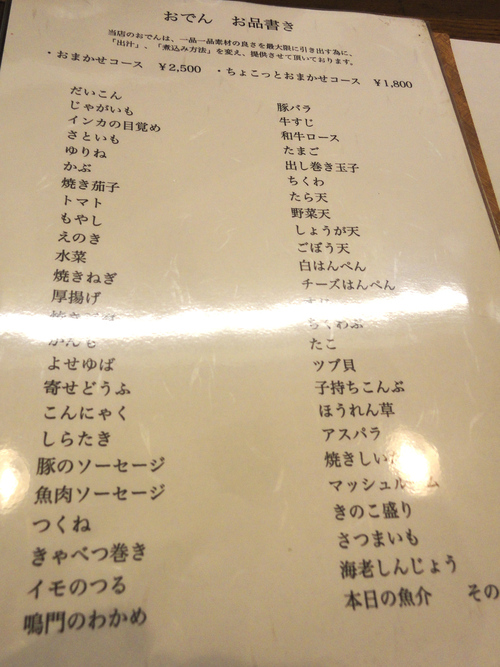 おでん　お品書き
当店のおでんは、一品一品素材の良さを最大限に引き出す為に、
「出汁」、「煮込み方法」を変え、提供させて頂いております。
・おまかせコース　￥2,500　・ちょこっとおまかせコース　￥1,800
だいこん
じゃがいも
インカの目覚め
さといも
ゆりね
かぶ
焼き茄子
トマト
もやし
えのき
水菜
焼きねぎ
厚揚げ
がんも
よせゆば
寄せどうふ
こんにゃく
しらたき
豚のソーセージ
魚肉ソーセージ
つくね
きゃべつ巻き
イモのつる
鳴門のわかめ
豚バラ
牛すじ
和牛ロース
たまご
出し巻き玉子
ちくわ
たら天
野菜天
しょうが天
ごぼう天
白はんぺん
チーズはんぺん
ちくわぶ
たこ
ツブ貝
子持ちこんぶ
ほうれん草
アスパラ
焼きしい
マッシュルーム
きのこ盛り
さつまいも
海老しんじょう
本日の魚介　その